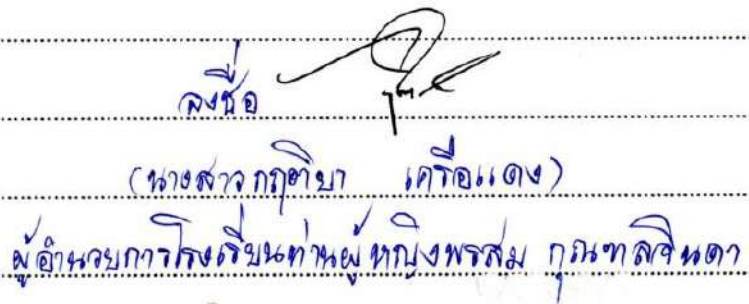 ลงชื่อ
(นางสาวกฤติยา เครือแดง)
ผู้อำนวยการโรงเรียนท่านผู้หญิงพรสม กุณฑลจินดา